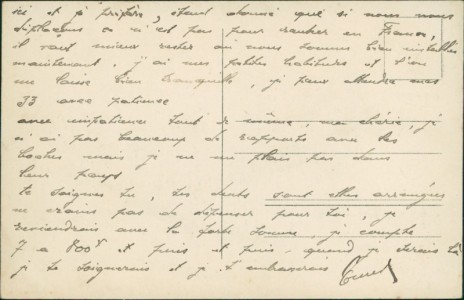 ici et je préfère, étant donné que si nous nous
déplaçons ce n'est pas pour rentrer en France,
il vaut mieux rester où nous sommes bien installés
maintenant, j'ai mes petites habitudes et l'on
me laisse bien tranquille, je peux attendre mes
33 avec patience
avec impatience tout de même, ma chérie, je
n'ai pas beaucoup de rapports avec les
boches mais je ne me plais pas dans
leur pays
te soignes tu, tes dents sont elles arrangées
ne crains pas de dépenser pour toi, je
reviendrais avec la forte somme, je compte
7 à 800f et puis et puis, quand je serais là
je te soignerais et je t'embrasserais